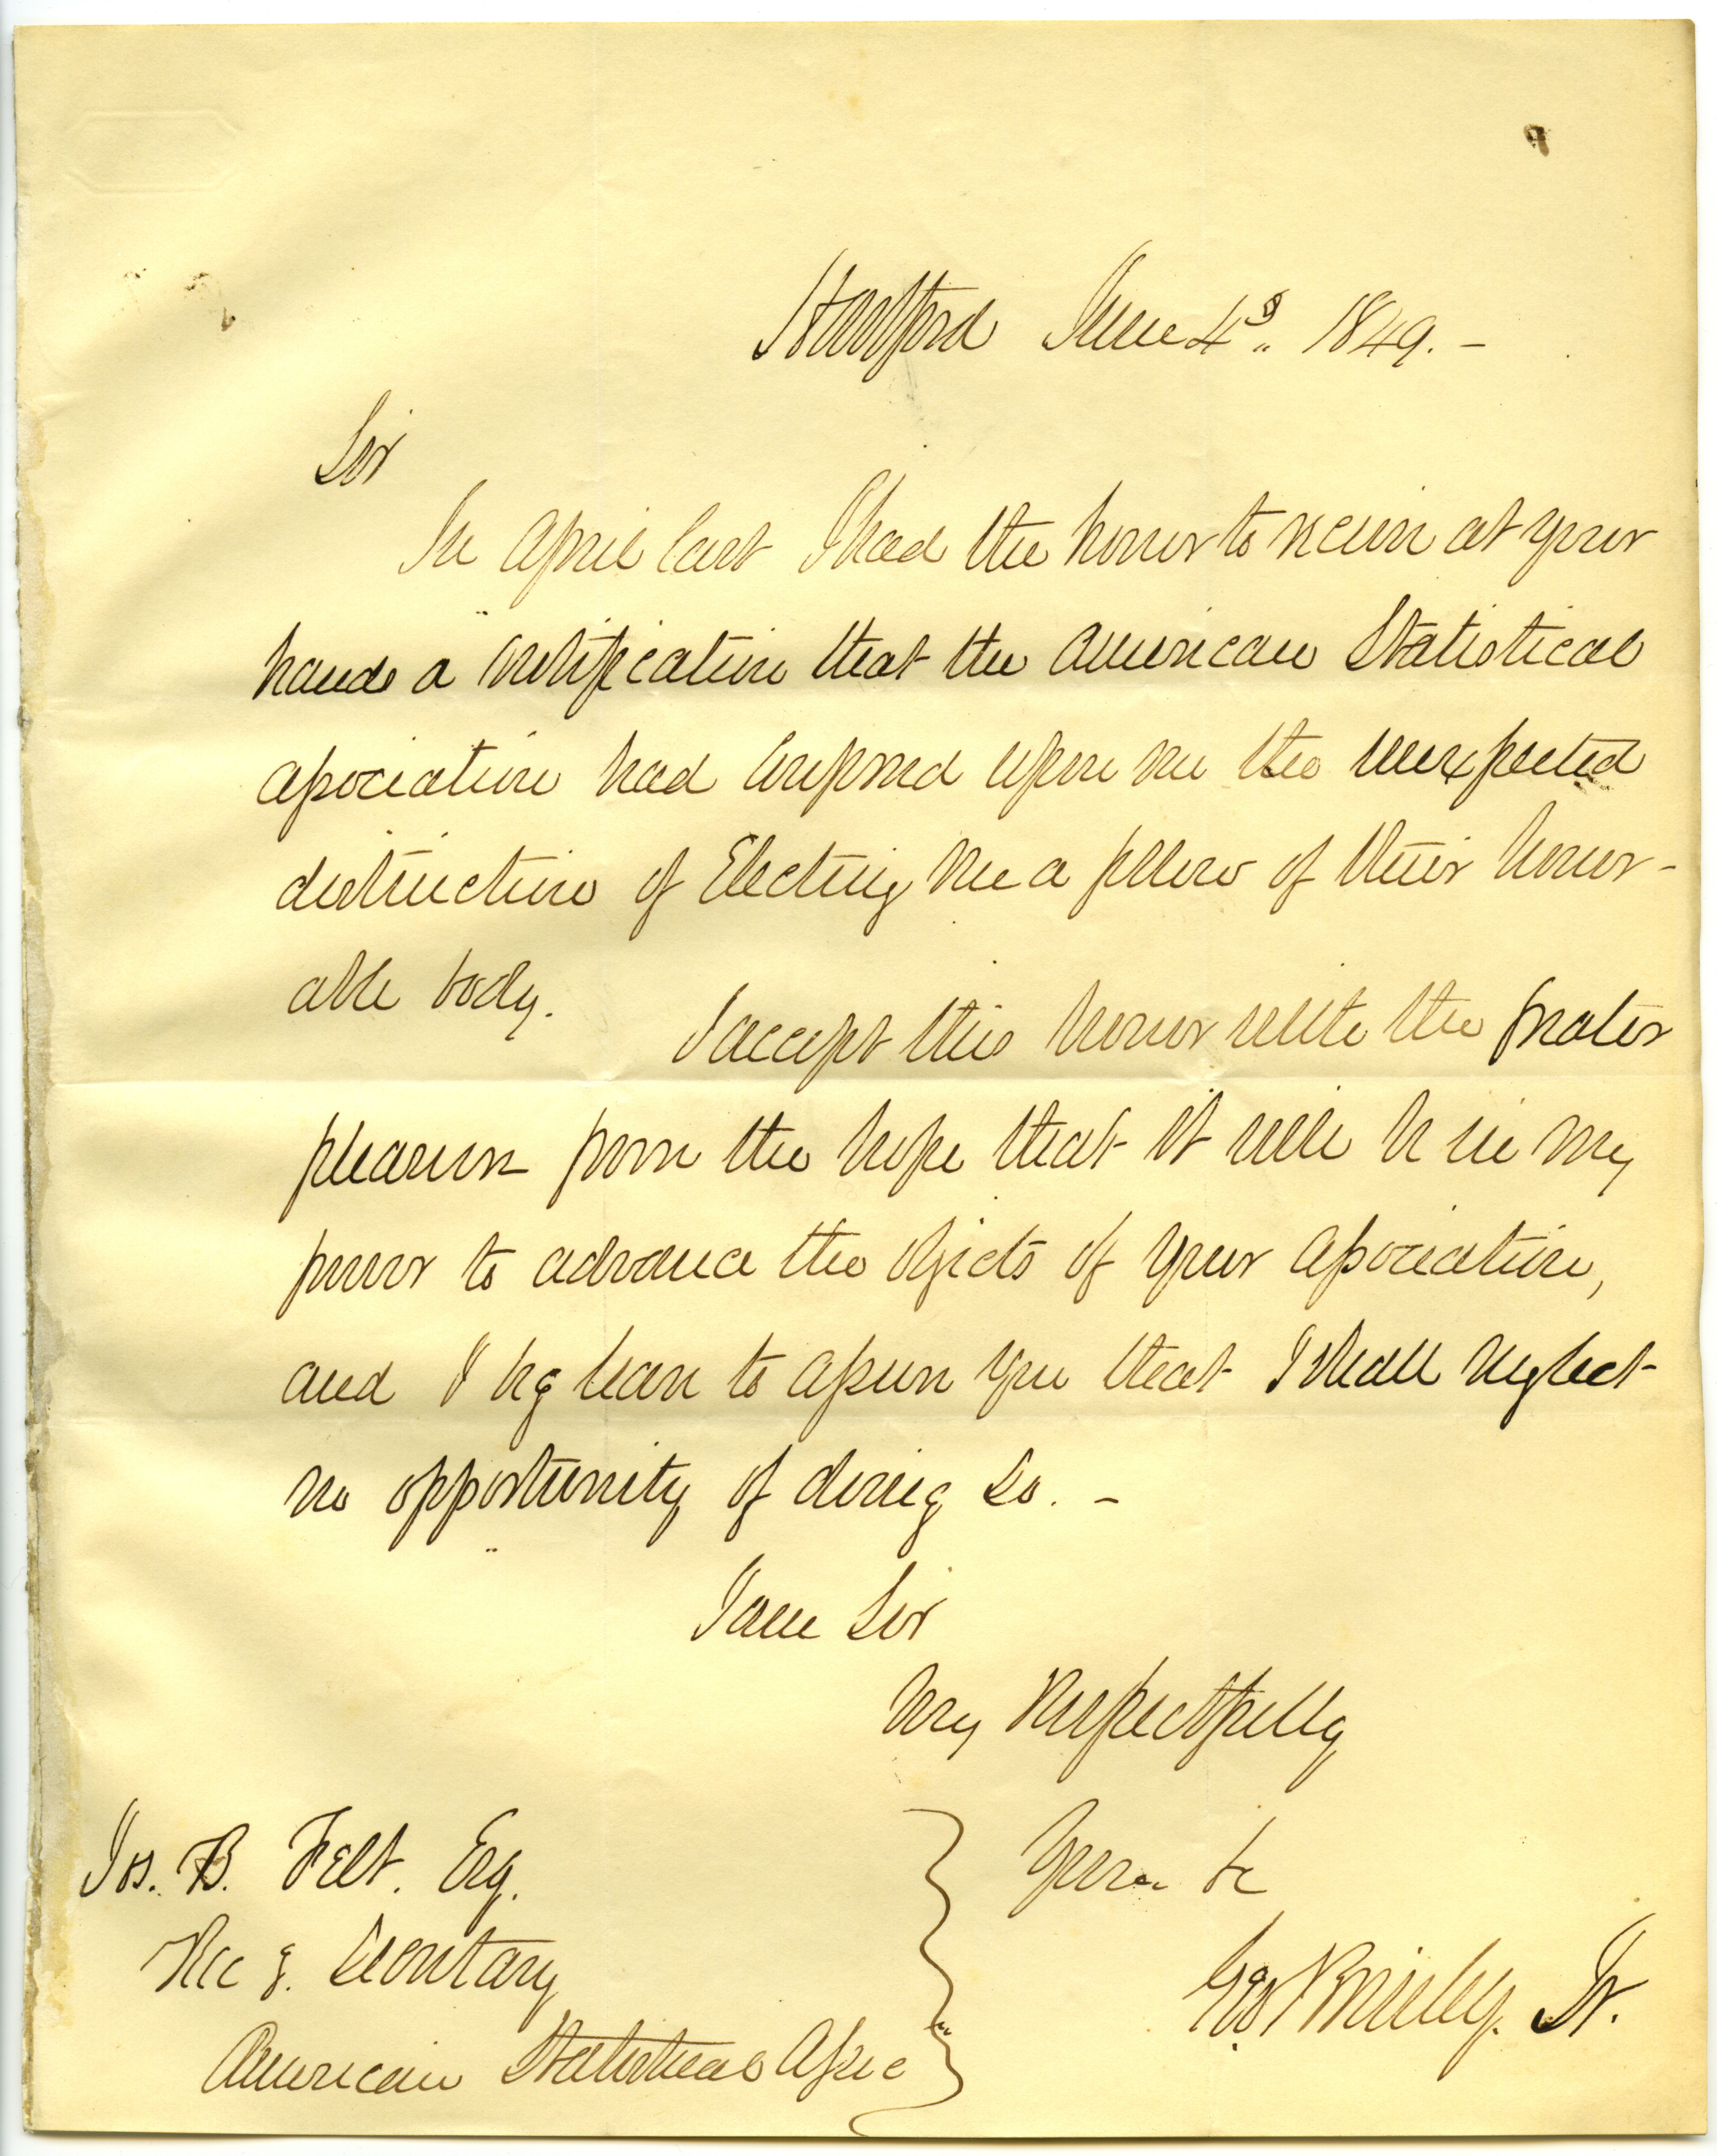 Hartford June 4th. 1849. -
Sir
In April last I had the honor to receive at your
hands a notification that the American Statistical
Association had conferred upon me the unexpected
distinction of Electing me a fellow of their honor-
able body.
I accept this honor with the greater
pleasure from the hope that it will be in my
power to advance the objects of your Association,
and I beg leave to assure you that I shall neglect
no opportunity of doing so. -
I am Sir
Very Respectfully
Yours &c
Geo Brinley. Jr.
Jos. B. Felt. Esq.
Rec g. Secretary
American Statistical Assoc